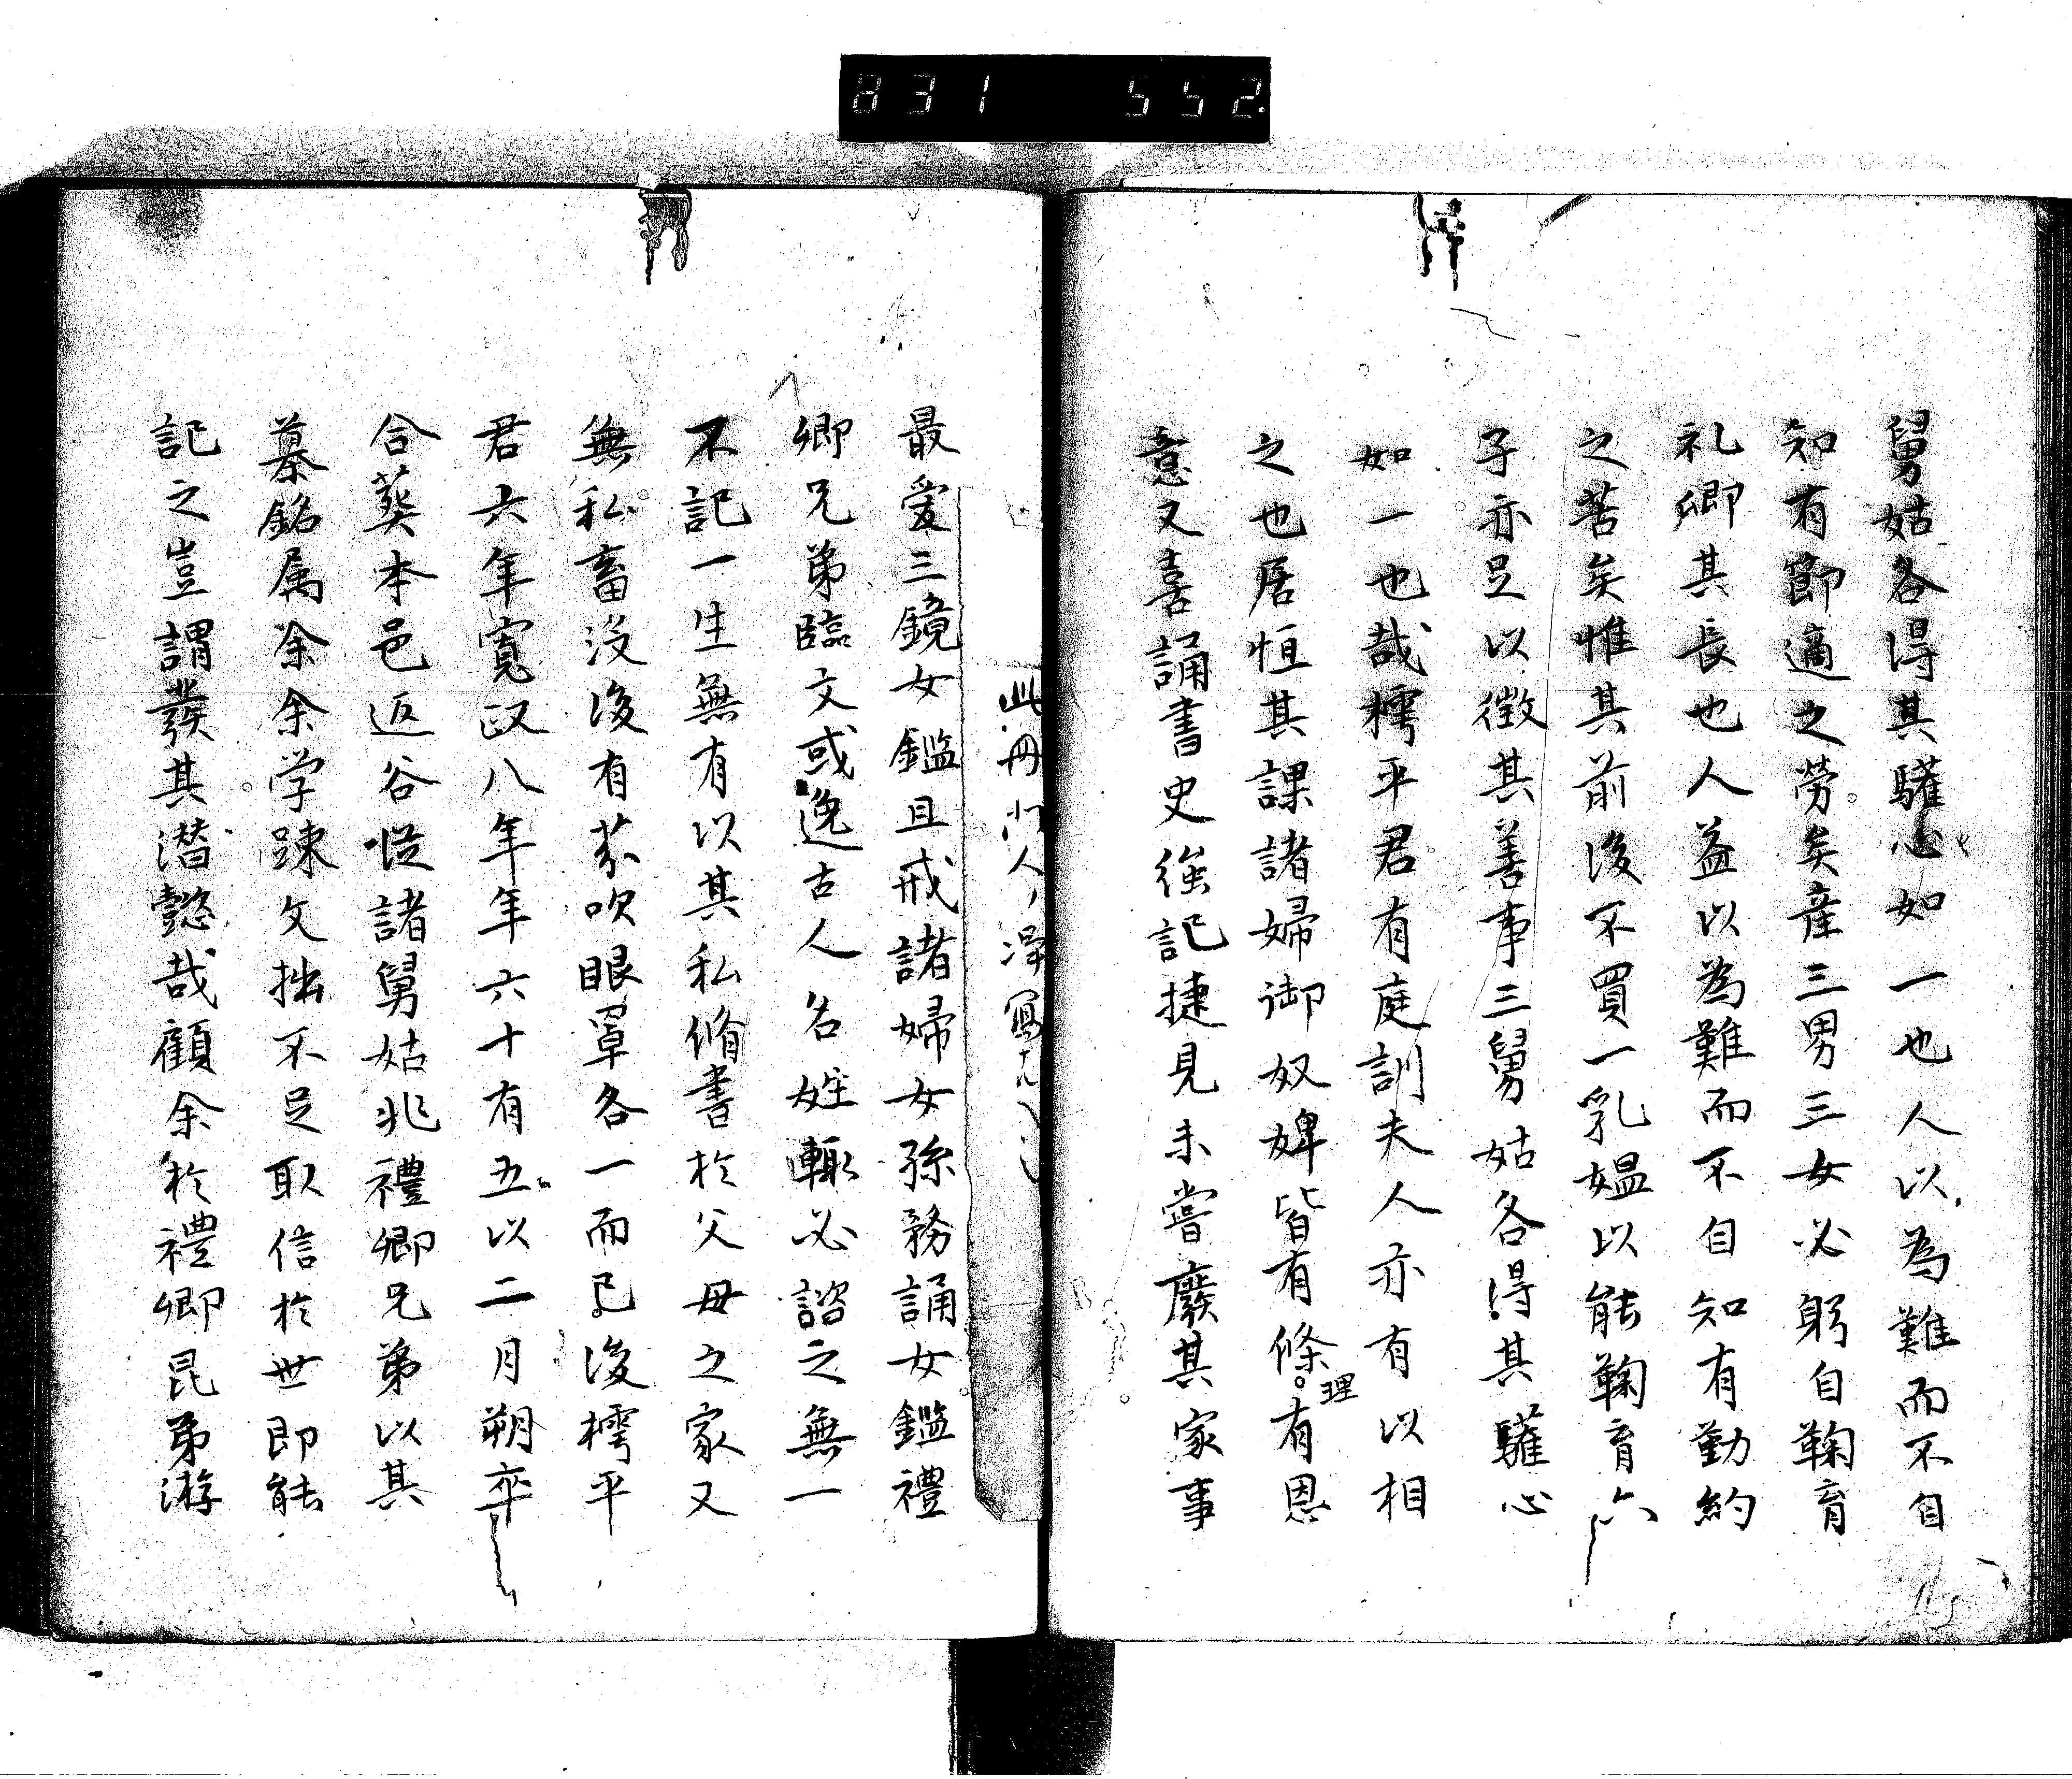 831 552
舅姑各得其驩心如一也人以為難而不自
知有節適之勞矣産三男三女必躬自鞠育
礼卿其長也人益以為難而不自知有勤約
之苦矣惟其前後不買一乳媼以能鞠育六
子亦足以徴其善事三舅姑各得其驩心
如一也哉樗平君有庭訓夫人亦有以相
之也居恒其課諸婦御奴婢皆有條理有恩
意又喜誦書史強記捷見未嘗廢其家事
此冊
最愛三鏡女鑑且戒諸婦女孫務誦女鑑禮
卿兄弟臨文或逸古人名姓輙必諮之無一
不記一生無有以其私脩書於父母之家又
無私畜没後有茶吹眼罩各一而已後樗平
君六年寛政八年年六十有五以二月朔卒
合葬本邑返谷從諸舅姑兆禮卿兄弟以其
墓銘属余余学踈文拙不足取信於世即能
記之豈謂發其潜懿哉顧余於禮卿昆弟游